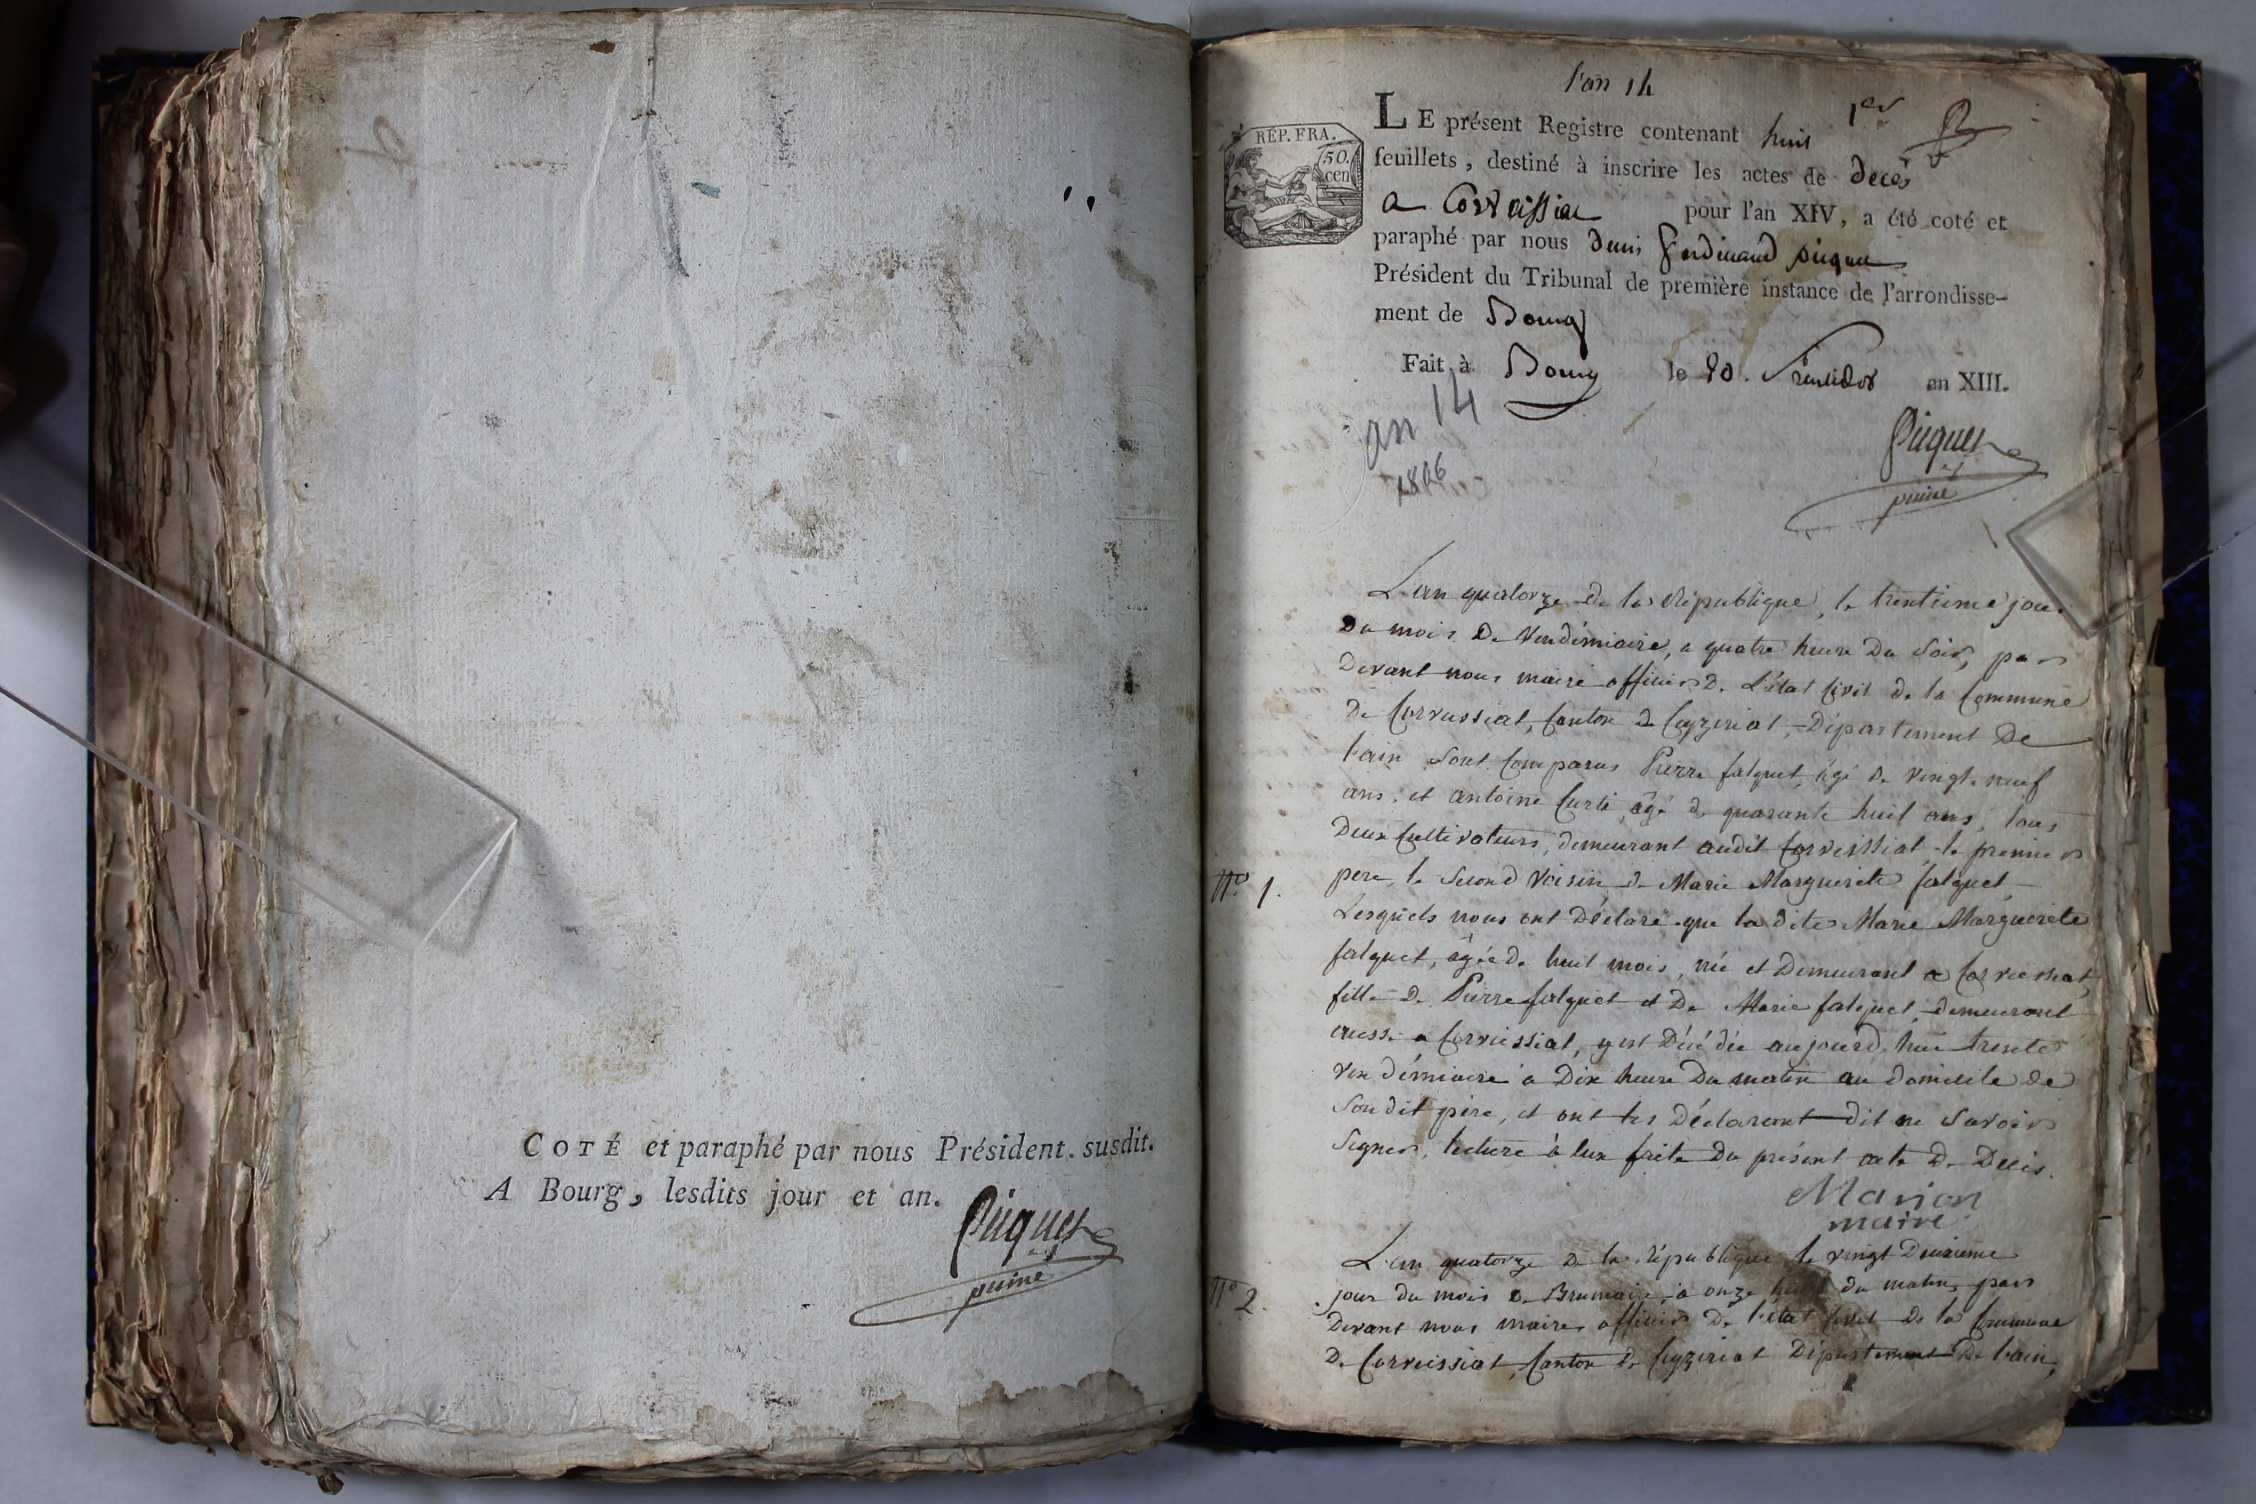 COTÉ et paraphé par nous Président susdit.
A Bourg, lesdits jour et an.
Picquet
puiné
l'an 14
1er
RÉP. FRA.
50.
cen
LE présent Registre contenant huit
feuillets, destiné à inscrire les actes de décès
a Corveissiat pour l'an XIV, a été coté et
paraphé par nous denis ferdinand picquet
Président du Tribunal de première instance de l'arrondisse-
ment de Bourg
Fait à Bourg le 20. fructidor an XIII.
an 14
1806
Picquet
puiné
L'an quatorze de la République, le trentieme jour
Du mois De Vendémiaire, a quatre heure Du Soir, par
Devant nous maire officier De L'état Civil de la Commune
De Corveissiat, Canton de Ceyzeriat, Département De
l'ain Sont Comparus Pierre falquet, âgé De vingt neuf
ans, et antoine Curti, âgé de quarante huit ans, tous
Deux Cultivateurs, demeurant audit Corveissiat, le premier
pere, le Second Voisin de Marie Marguerite falquet
Lesquels nous ont Déclaré que la dite Marie Marguerite
falquet, âgée de huit mois, née et Demeurant a Corveissiat,
fille De Pierre falquet et De Marie falquet, demeurant
aussi a Corveissiat, y est Décédée aujourd'hui trente
Vendémiaire a Dix heure Du matin au domicile de
Son dit père, et ont les Déclarant dit ne Savoir
Signer, lecture à eux faite Du présent acte De Décès.
Marion
maire
N.o 1.
L'an quatorze De la République le vingt Deuxieme
jour du mois De Brumaire, à onze heure du matin, par
Devant nous maire officier De l'état Civil De la Commune
De Corveissiat, Canton de Ceyzeriat Département De l'ain,
N.o 2.